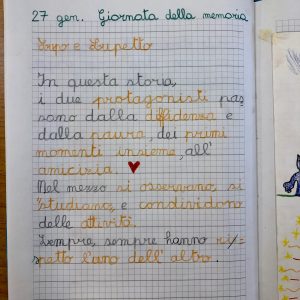 27 gen. Giornata della memoria
Lupo e Lupetto
In questa storia,
i due protagonisti pas
sono dalla diffidenza e
dalla paura, dei primi
momenti insieme, all'
amicizia.
Nel mezzo si osservano, si
studiano, e condividono
delle attività.
Sempre, sempre hanno ri/=
spetto l'uno dell'altro.